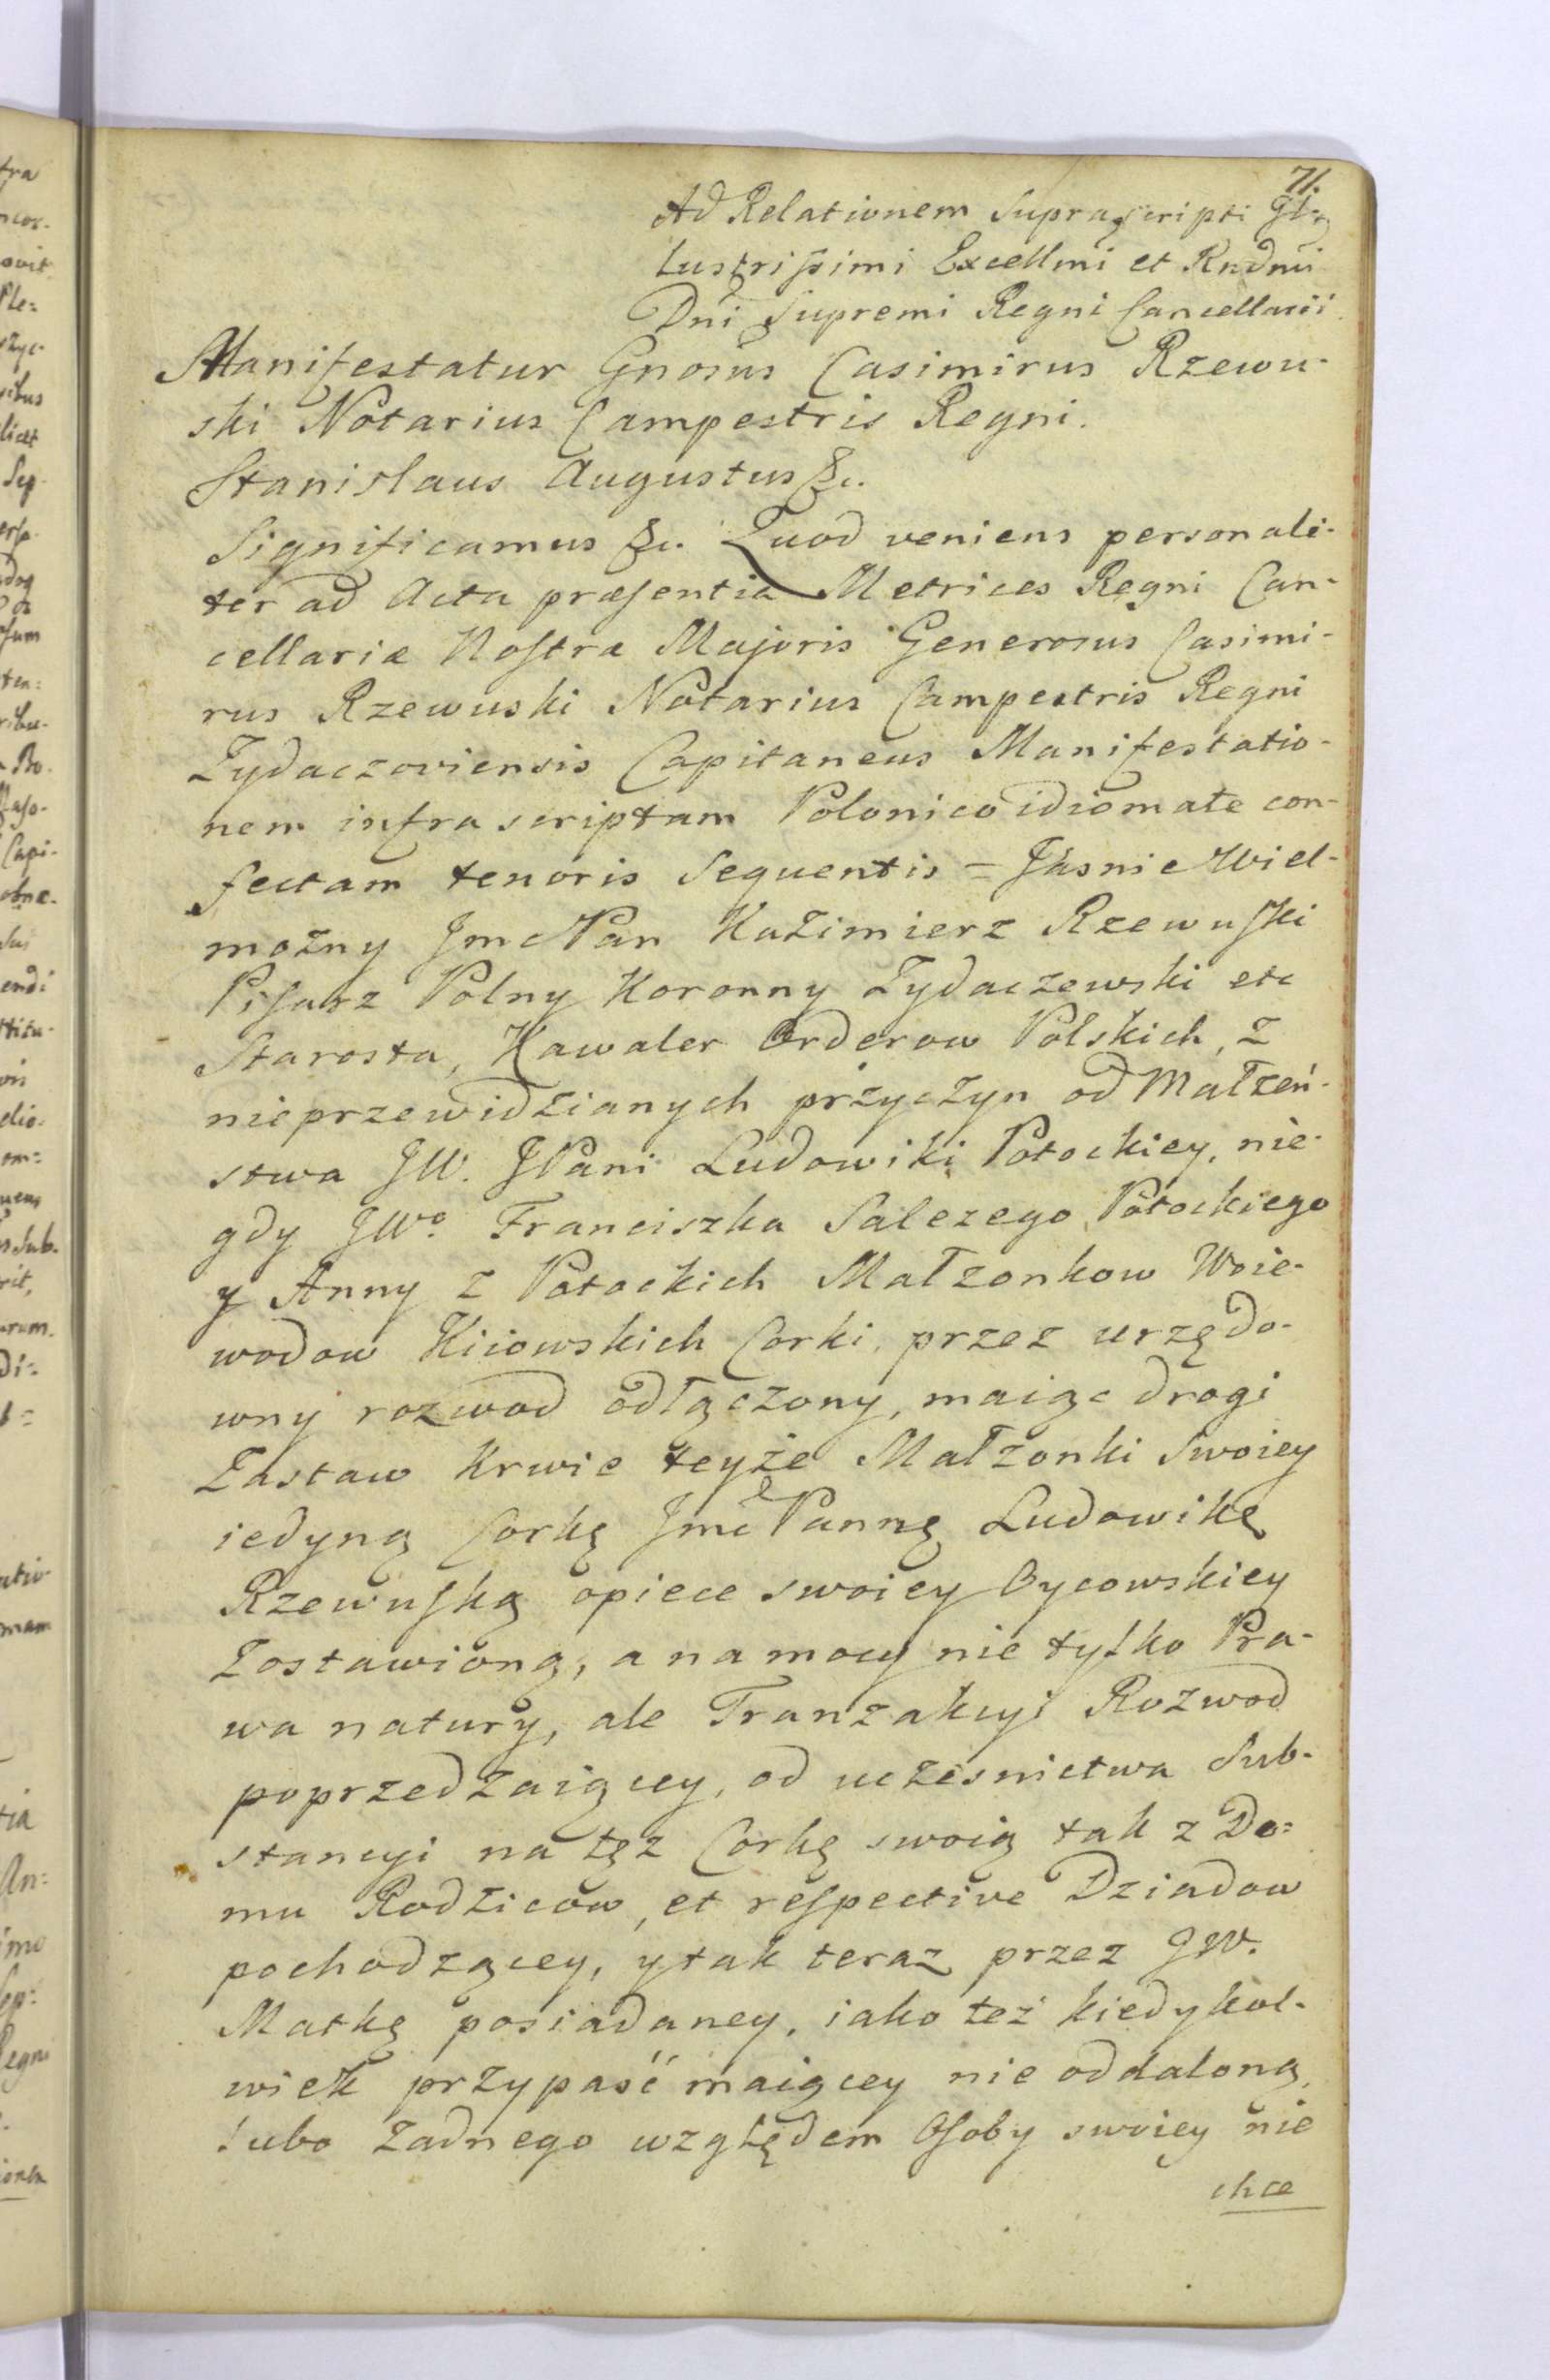 71.
Ad Relationem Suprascripti Il-
lustrissimi Excellmi et Rndmi
Dni Supremi Regni Cancellarii.
Manifestatur Gnosus Casimirus Rzewu-
ski Notarius Campestris Regni.
Stanislaus Augustus &c.
Significamus &c. Quod veniens personali-
ter ad Acta præsentia Metrices Regni Can-
cellariæ Nostræ Majoris Generosus Casimi-
rus Rzewuski Notarius Campestris Regni
Zydaczoviensis Capitaneus Manifestatio-
nem infra scriptam Polonico idiomate con-
fectam tenoris sequentis = Jasnie Wiel-
możny Jmć Pan Kazimierz Rzewuski
Pisarz Polny Koronny Zydaczewski etc
Starosta, Kawaler Orderow Polskich, z
nieprzewidzianych przyczyn od Małzeń-
stwa JW. JPani Ludowiki Potockiey, nie-
gdy JWo. Franciszka Salezego Potockiego
y Anny z Potockich Małzonkow Woie-
wodow Kiiowskich Corki, przez urzędo-
wny rozwod odłączony, maiąc drogi
Zastaw krwie teyże Małzonki swoiey
iedyną Corkę Jmć Pannę Ludowikę
Rzewuską opiece swoiey Oycowskiey
zostawioną, a na mocy nie tylko Pra-
wa natury, ale Tranzakcyi Rozwod
poprzedzaiącey, od uczesnictwa Sub-
stancyi na tęz Corkę swoią tak z Do=
mu Rodzicow, et respective Dziadow
pochodzącey, y tak teraz przez JW.
Matkę posiadaney, iako też kiedykol-
wiek przypaść maiącey nie oddaloną,
lubo zadnego względem Osoby swoiey nie
chce